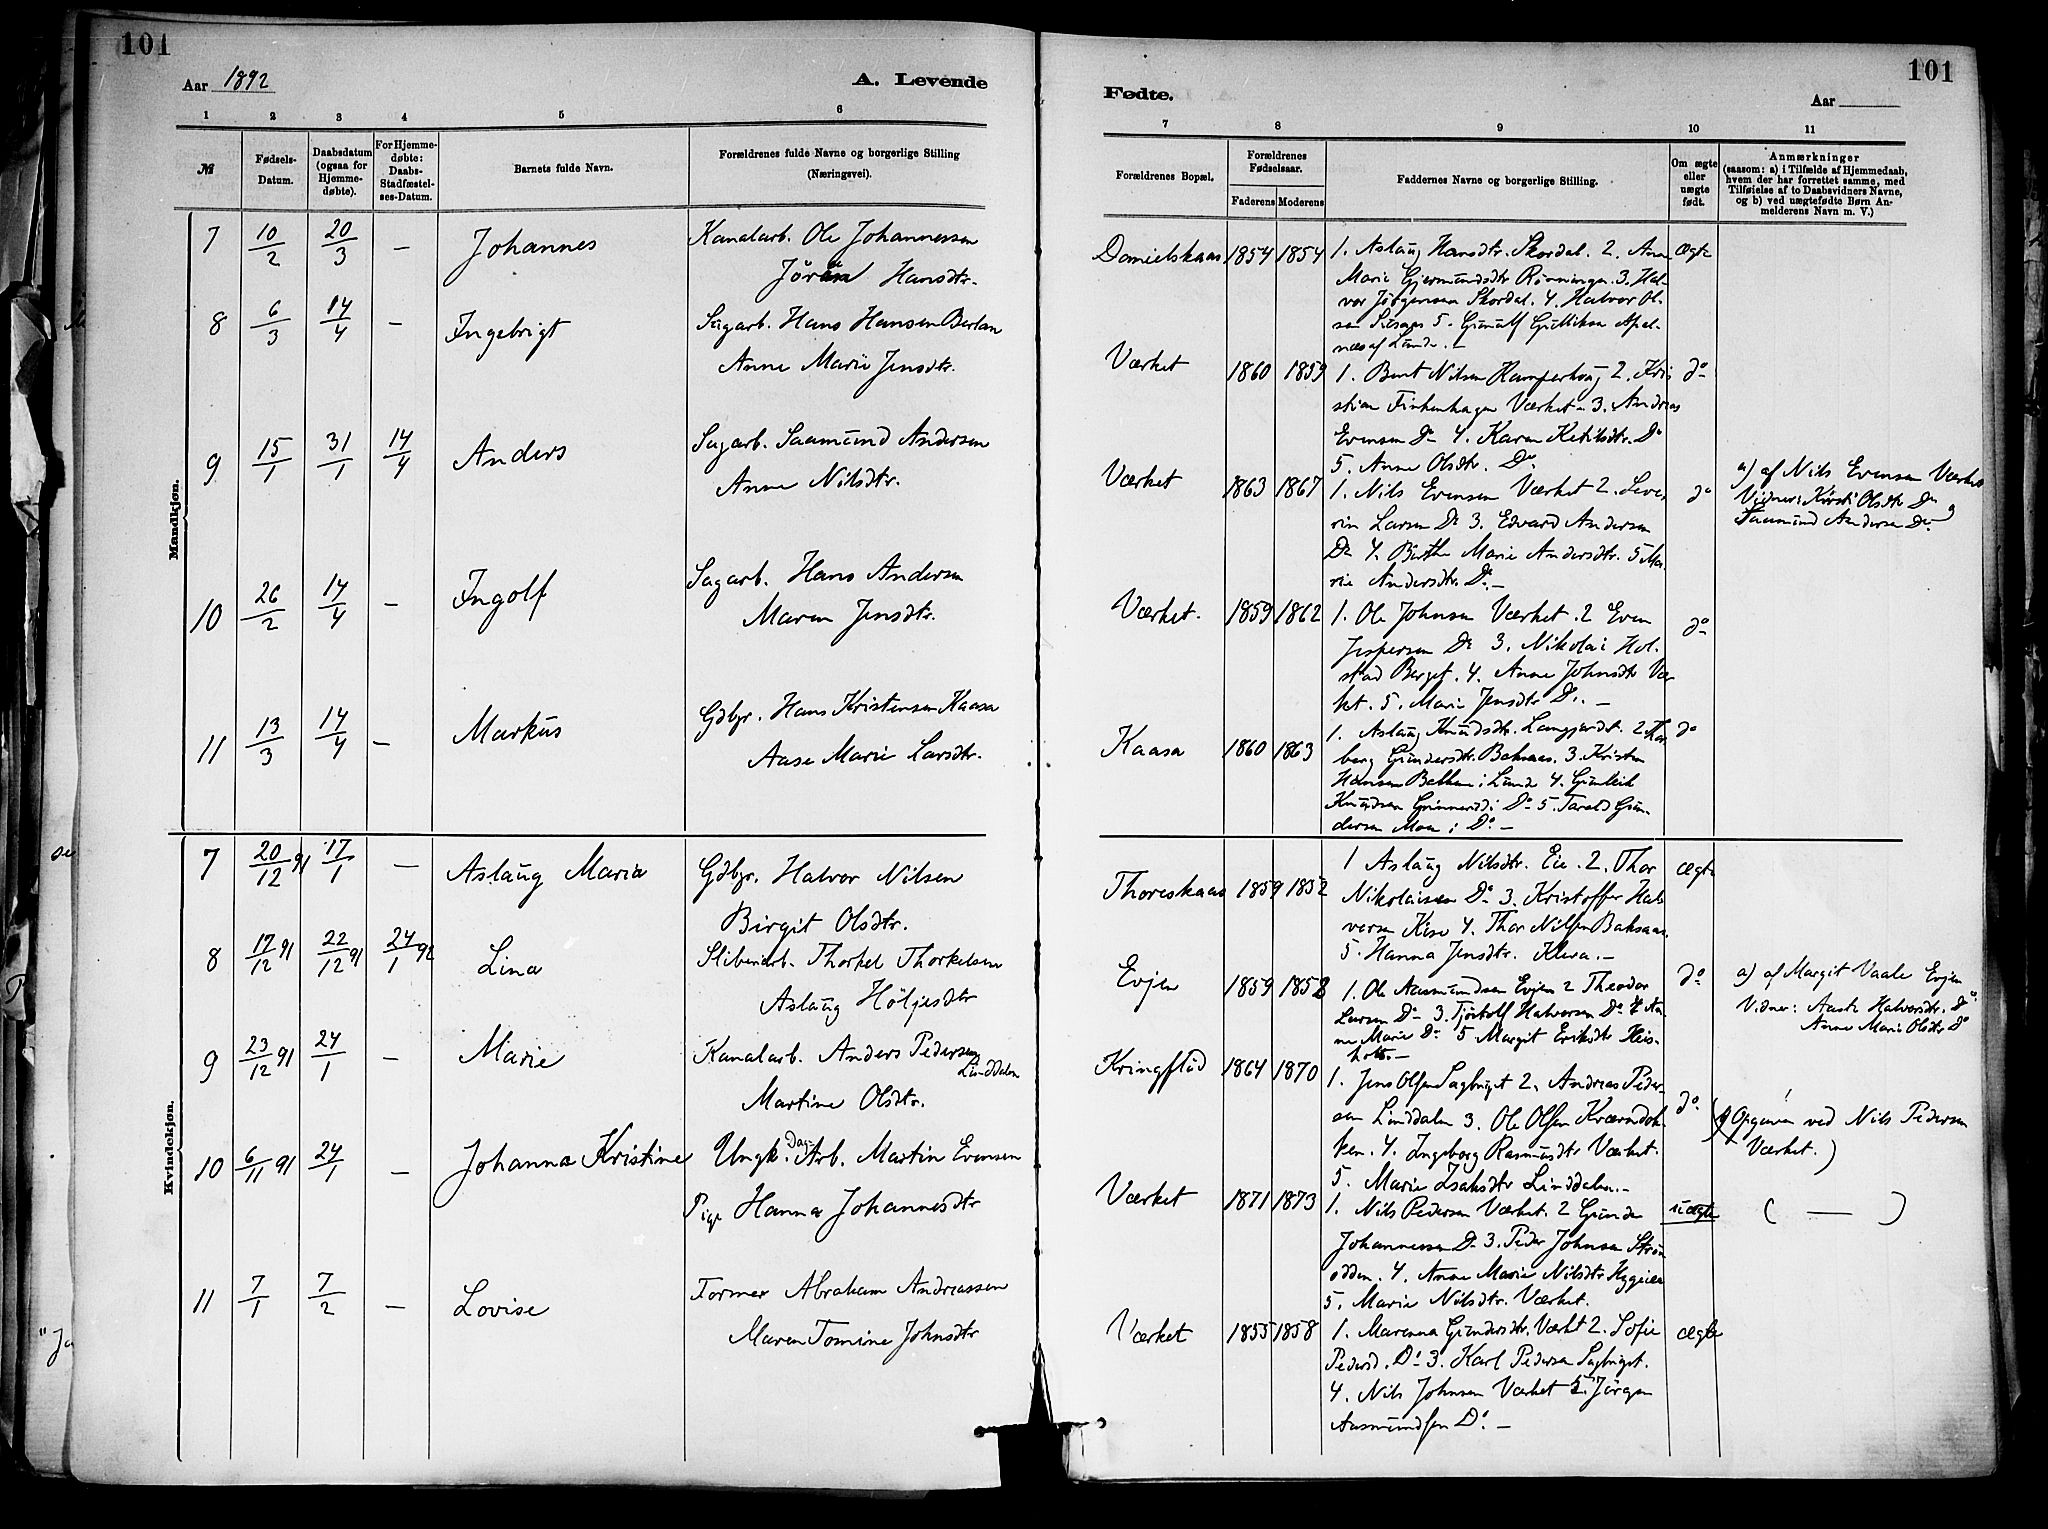 101
Aar 1892
A. Levende
1 2 3 4 5 6
№
Fødsels-Datum.
Daabsdatum (ogsaa for Hjemmedøbte).
For Hjemmedøbte: Daabs-Stadfæstelses-Datum.
Barnets fulde Navn.
Forældrenes fulde Navne og borgerlige Stilling (Næringsvei).
Mandkjøn.
7 10/2 20/3 — Johannes Kanalarb. Ole Johannessen
Jøran Hansdtr.
8 6/3 14/4 — Ingebrigt Sagarb. Hans Hansen
Anne Marie Jensdtr.
9 15/1 31/1 14/4 Anders Sagarb. Saamund Andersen
Anne Nilsdtr.
10 26/2 14/4 — Ingolf Sagarb. Hans Andersen
Maren Jensdtr.
11 13/3 14/4 — Markus Gdbgr. Hans Kristensen Kaasa
Aase Marie Larsdtr.
Kvindekjøn.
7 20/12 91 17/1 — Aslaug Maria Gdbgr. Halvor Nilsen
Birgit Olsdtr.
8 17/12 91 22/12 91 24/1 92 Lina Sliberiarb. Thorkel Thorkelsen
Aslaug Høljesdtr
9 23/12 91 24/1 — Marie Kanalarb. Anders Pedersen
Linddalen
Martine Olsdtr.
10 6/11 91 24/1 — Johanna Kristine Ungk. Dag-Arb. Martin Evensen
Pige Hanna Johannesdtr
11 7/1 7/2 — Lovise Former Abraham Andreassen
Maren Tomine Johnsdtr
101
Fødte.
Aar
7 8 9 10 11
Forældrenes Bopæl.
Forældrenes Fødselsaar.
Faderens Moderens
Faddernes Navne og borgerlige Stilling.
Om ægte eller uægte født.
Anmærkninger
(saasom: a) i Tilfælde af Hjemmedaab,
hvem der har forrettet samme, med
Tilføielse af to Daabsvidners Navne,
og b) ved uægtefødte Børn An-
melderens Navn m. V.)
Danielskaas 1854 1854 1. Aslaug Hansdtr. Skordal. 2. Anne ægte
Marie Gjermundsdtr Rønningen. 3. Hal-
vor Jørgensen Skordal. 4. Halvor Ol-
sen 5. Gunulf Gulliksen Apal-
næs af Lunde. —
Værket 1860 1859 1. Bent Nilsen 2. Kris do
stian Finkenhagen Værket 3. Andreas
Evensen Do 4. Karen Ketilsdtr. Do
5. Anne Olsdtr. Do
Værket 1863 1867 1. Nils Evensen Værket 2. Seve- do
rin Larsen Do 3. Edvard Andersen
Do 4. Berthe Marie Andersdtr. 5 Ma-
rie Andersdtr. Do —
a) af Nils Evensen Værket
Vidner: Kirsti Olsdtr Do og
Saamund Andersen Do
Værket. 1859 1862 1. Ole Johnsen Værket. 2 Even do
Jespersen Do 3. Nikolai Hol-
stad Berget. 4. Anne Johnsdtr Vær-
ket. 5. Marie Jensdtr Do. —
Kaasa 1860 1863 1. Aslaug Knudsdtr. Langjordet. 2. Thor- do
berg Gundersdtr. Baksaas. 3. Kristen
Hansen Bakken i Lunde 4. Gunleik
Knudsen i Do 5. Tarald Gun-
dersen Moen i Do. —
Thoreskaas 1859 1852 1 Aslaug Nilsdtr. Eie. 2. Thor ægte
Nikolaisen Do 3. Kristoffer Hal-
vorsen Kise 4. Thor Nilsen Baksaas.
5. Hanna Jensdtr. Kleva. —
Evjen 1859 1858 1. Ole Aasmundsen Evjen 2 Theodor do
Larsen Do 3. Tjøstolf Halvorsen Do 4 An-
ne Marie Do 5 Margit Eriksdtr Heis-
holt. —
a) af Margit Vaale Evjen
Vidner: Aaste Halvorsdtr. Do
Anne Marie Olsdtr Do
Kringflud 1864 1870 1. Jens Olsen Sagbruget 2. Andreas Peder- do
sen Linddalen 3. Ole Olsen Kværndok-
ken. 4. Ingeborg Rasmusdtr Værket.
5. Marie Isaksdtr Linddalen. —
(Opgiven ved Nils Pedersen
Værket.)
Værket 1871 1873 1. Nils Pedersen Værket. 2 Gunder uægte ( — )
Johannessen Do 3. Peder Johnsen Strøm-
odden. 4. Anne Marie Nilsdtr Hygeien
5. Marie Nilsdtr. Værket.
Værket 1855 1858 1. Marenna Gundersdtr. Værket 2. Sofie ægte
Pedersd. Do 3. Karl Pedersen Sagbruget.
4. Nils Johnsen Værket 5. Jørgen
Aasmundsen Do. —